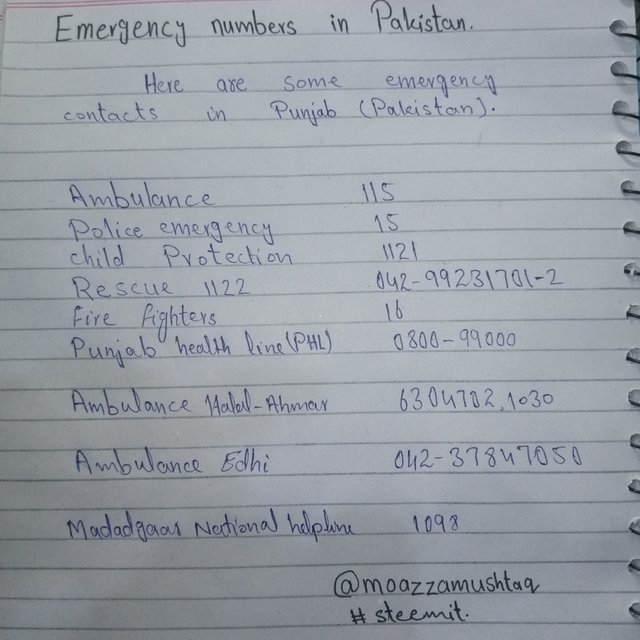 Emergency numbers in Pakistan.
Here are some emergency
contacts in Punjab (Pakistan).
Ambulance 115
Police emergency 15
child Protection 1121
Rescue 1122 042-99231701-2
Fire fighters 16
Punjab health line (PHL) 0800-99000
Ambulance Halal-Ahmar 6304702, 1030
Ambulance Edhi 042-37847050
Madadgaar National helpline 1098
@moazzamushtaq
# steemit.